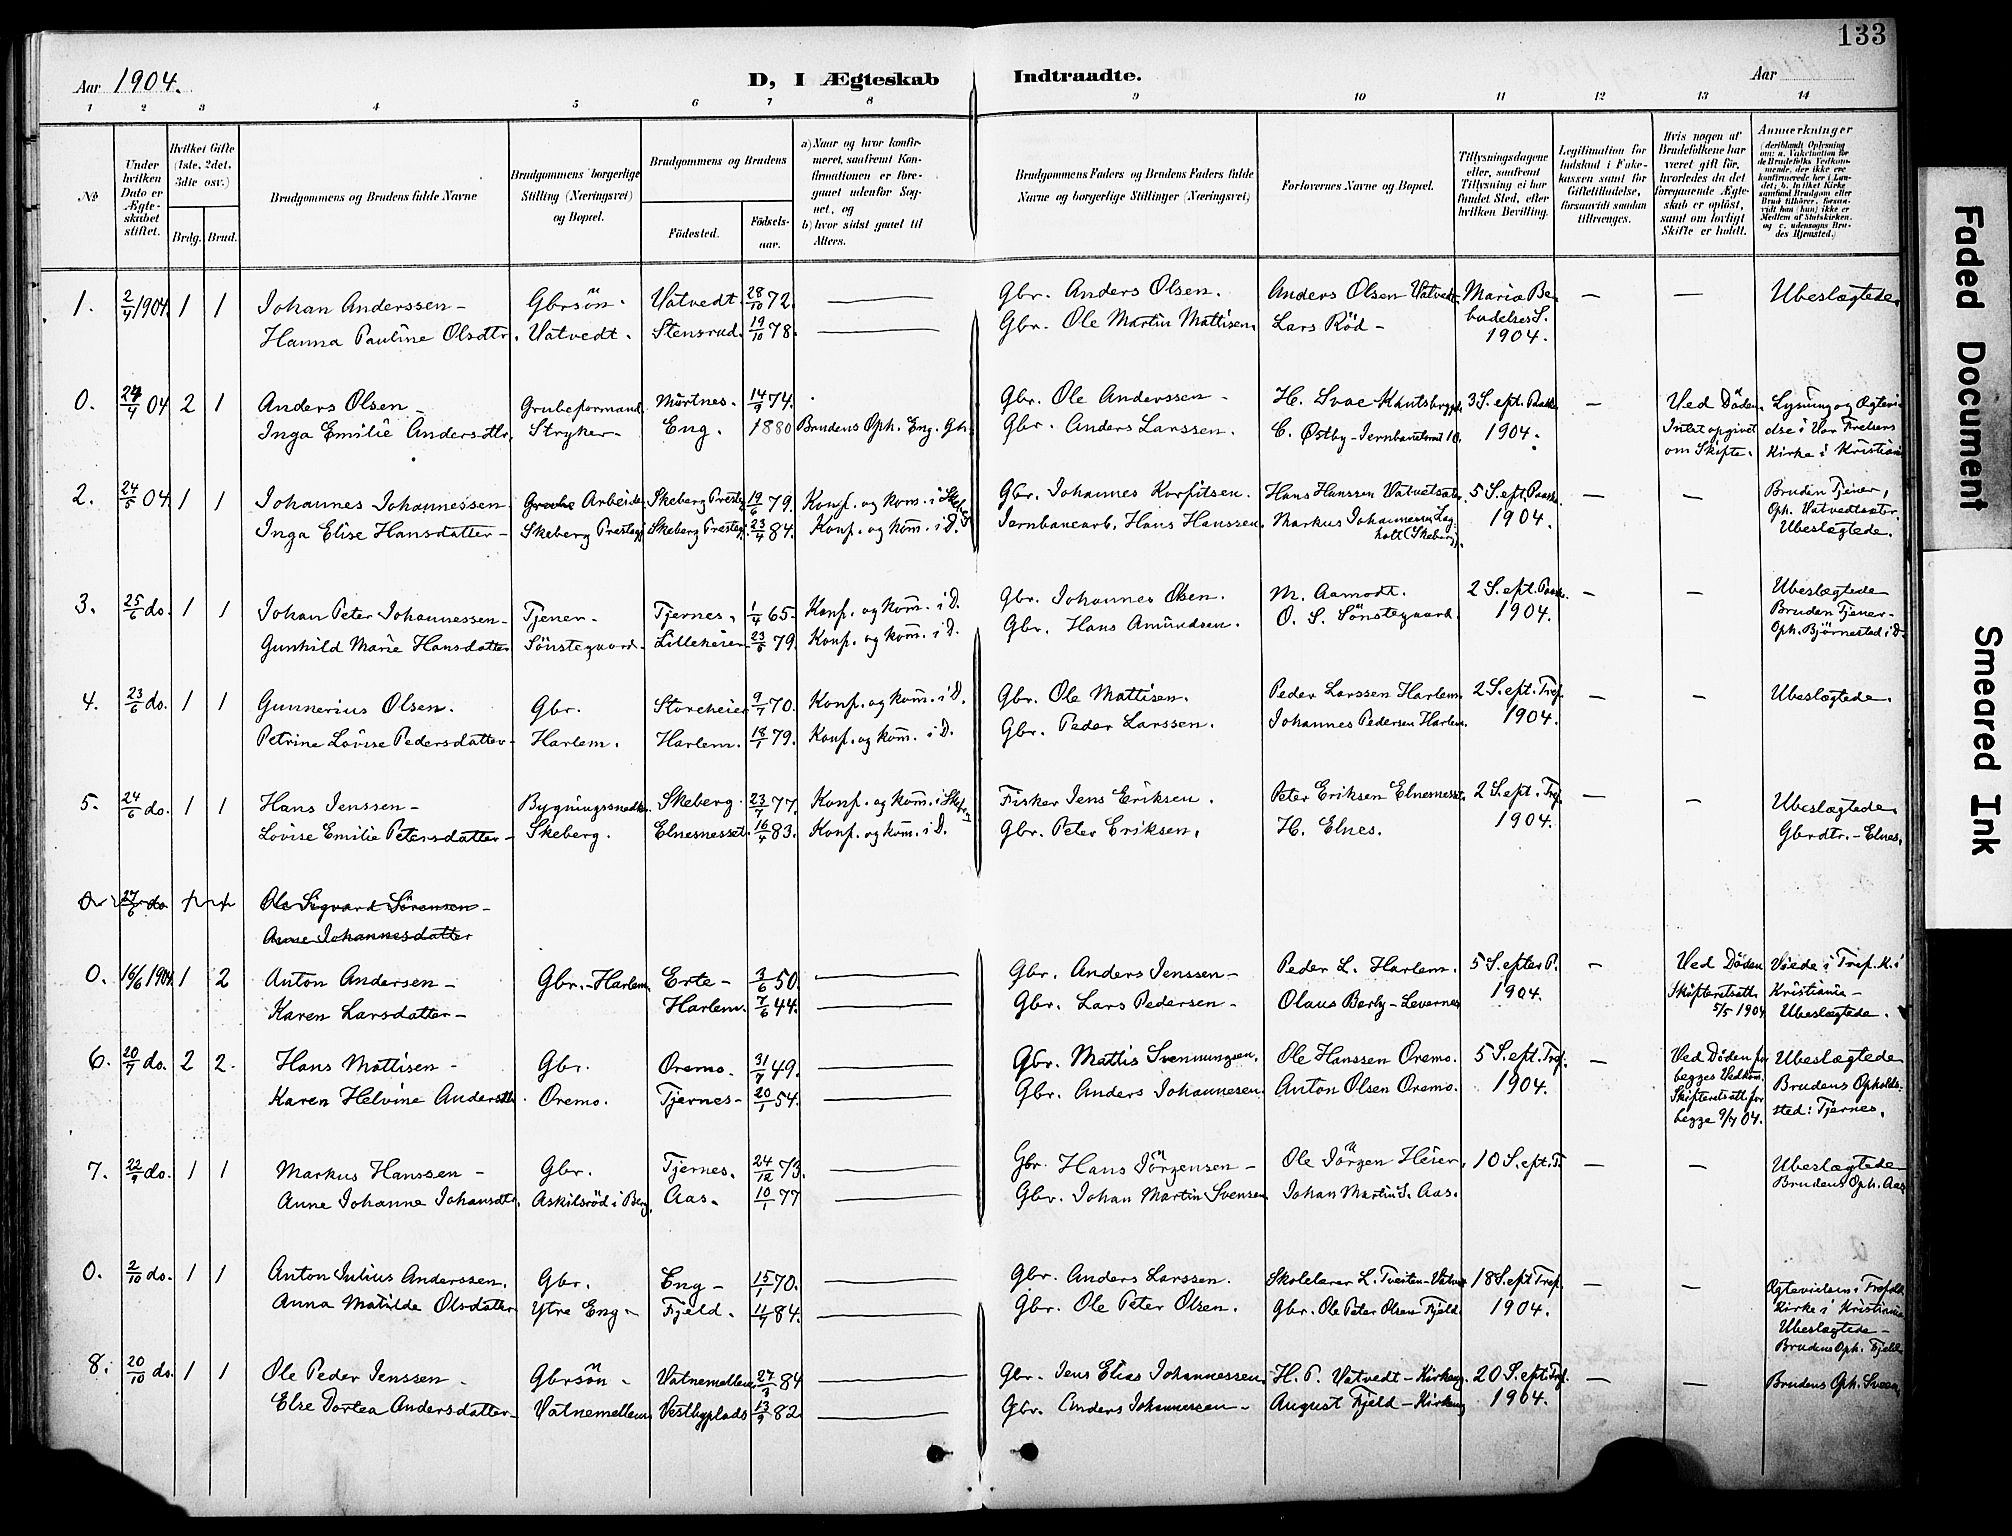 133
Aar 1904.
D, I Ægteskab Indtraadte.
Aar
1 2 3 4 5 6 7 8 9 10 11 12 13 14
No.
Under hvilken Dato er Ægteskabet stiftet.
Hvilket Gifte (1ste, 2det, 3die osv.)
Brdg. Brud.
Brudgommens og Brudens fulde Navne
Brudgommens borgerlige Stilling (Næringsvei) og Bopæl.
Brudgommens og Brudens
Födested.
Födselsaar.
a) Naar og hvor konfirmeret, saafremt Konfirmationen er foregaaet udenfor Sognet, og
b) hvor sidst gaaet til Alters.
Brudgommens Faders og Brudens Faders fulde Navne og borgerlige Stillinger (Næringsvei)
Forlovernes Navne og Bopæl.
Tillysningsdagene eller, saafremt Tillysning ei har fundet Sted, efter hvilken Bevilling.
Legitimation for Indskud i Enkekassen samt for Giftetilladelse, forsaavidt saadan tiltrænges.
Hvis nogen af Brudefolkene har været gift för, hvorledes da det foregaaende Ægteskab er oplöst, samt om lovligt Skifte er holdt.
Anmerkninger
1. 2/4 1904. 1 1 Johan Anderssen - Gbrsön. Vatvedt. 28/10 72. — Gbr. Anders Olsen. Anders Olsen Vatvedt. Maria Be- — — Ubeslægtede
Hanna Pauline Olsdtr. Vatvedt. Stensrud. 19/10 78. — Gbr. Ole Martin Mattisen. Lars Röd - budelses S.
1904.
0. 24/4 04 2 1 Anders Olsen - Grubeformand. Mörtnes. 14/9 74. Gbr. Ole Anderssen - H. 3 S. eft. Paaske — Ved Döden. Lysning og Ægtevi-
Inga Emilie Andersdtr. Stryker. Eng. 1880 Brudens Oph. Eng. Gbr. Anders Larssen. C. Østby - 1904. Intet opgivet delse i Vor Frelsers
om Skifte. Kirke i Kristiania
2. 24/5 04. 1 1 Johannes Johannessen Grube Arbeider Skeberg Presteg. 19/6 79. Konf. og kom. i Skeberg Gbr. Johannes Korfitsen. Hans Hanssen Vatvetsæter. 5 S. eft. Paaske — — Bruden Tjener,
Inga Elise Hansdatter - Skeberg Presteg. Skeberg Presteg. 23/4 84. Konf. og kom. i D. Jernbanearb. Hans Hanssen. Markus Johannessen 1904. Oph. Vatvedtsæter.
holt (Skeberg). Ubeslægtede.
3. 25/6 do. 1 1 Johan Peter Johannessen - Tjener. Tjernes. 1/4 65. Konf. og kom. i D. Gbr. Johannes Olsen. M. Aamodt. 2 S. eft. Paaske — — Ubeslægtede
Gunhild Marie Hansdatter Sönstegaard. Lilleheier 23/6 79. Konf. og kom. i D. Gbr. Hans Amundsen. O. S. Sönstegaard. 1904. Bruden Tjener -
Oph. Björnestad i D.
4. 23/6 do. 1 1 Gunnerius Olsen. Gbr. Storeheier 9/7 70. Konf. og kom. i D. Gbr. Ole Mattisen. Peder Larssen Harlem. 2 S. eft. Tref. — — Ubeslægtede.
Petrine Lovise Pedersdatter - Harlem. Harlem. 18/1 79. Konf. og kom. i D. Gbr. Peder Larssen. Johannes Pedersen Harlem. 1904.
5. 24/6 do. 1 1 Hans Jenssen - Bygningssnedker. Skeberg. 23/7 77. Konf. og kom. i Skeberg Fisker Jens Eriksen. Peter Eriksen Elnesnesset. 2 S. eft. Tref. — — Ubeslægtede
Lovise Emilie Petersdatter - Skeberg. Elnesnesset. 16/4 83. Konf. og kom. i D. Gbr. Peter Eriksen. H. Elnes. 1904. Gbrdtr. - Elnes.
0 27/6 do 1 1 Ole Sigvard Sörensen -
Anne Johannesdatter
0. 16/6 1904. 1 2 Anton Andersen - Gbr. - Harlem. Erte - 3/6 50. — Gbr. Anders Jenssen - Peder L. Harlem. 5 S. efter P. — Ved Döden Viede i Tref. K. i
Karen Larsdatter - Harlem. 7/6 44. — Gbr. Lars Pedersen - Olaus Berby - 1904. Skifteretsatt. Kristiania -
5/5 1904 Ubeslægtede.
6. 20/7 do. 2 2. Hans Mattisen - Gbr. Oremo. 31/7 49. — Gbr. Mattis Svenningsen. Ole Hanssen Oremo. 5 S. eft. Tref. — Ved Döden for Ubeslægtede
Karen Helvine Andersdtr. Oremo. Tjernes - 20/1 54. — Gbr. Anders Johannesen. Anton Olsen Oremo. 1904. begges Vedkom. Brudens Opholds-
Skifteretsatt. for sted: Tjernes.
begge 9/7 04.
7. 22/9 do. 1 1 Markus Hanssen - Gbr. Tjernes. 24/12 73. — Gbr. Hans Jörgensen - Ole Jörgen Heier. 10 S. eft. T. — — Ubeslægtede
Anne Johanne Johansdtr. Askilsröd i Berg. Aas. 10/1 77 — Gbr. Johan Martin Svensen. Johan Martin S. Aas. Brudens Oph. Aas
0. 2/10 do. 1 1 Anton Julius Anderssen. Gbr. Eng - 15/1 70. — Gbr. Anders Larssen. Skolelærer L. Tveiten - 18 S. eft. Tref. — — Ægtevielsen i Trefold.
Anna Matilde Olsdatter Ytre Eng - Fjeld. 11/4 84. — Gbr. Ole Peter Olsen. Gbr. Ole Peter Olsen Fjeld. 1904. Kirke i Kristiania
Ubeslægtede -
Brudens Oph. Fjeld
8. 20/10 do. 1 1 Ole Peder Jenssen - Gbrsön - Vatnemellem. 27/3 84 — Gbr. Jens Elias Johannessen. H. P. Vatvedt - Kirkeng. 20 S. eft. Tref. — — Brudens Oph. Sveen
Else Dortea Andersdatter - Vatnemellem Vestbyplads 13/9 82 — Gbr. Anders Johannessen - August Fjeld - Kirkeng 1904.
Faded Document
Smeared Ink